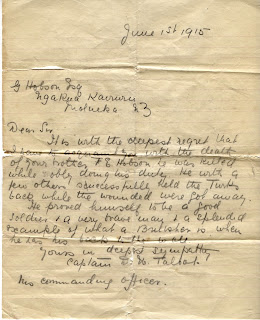 June 1st 1915
G Hobson Esq
Ngatua Kairuru
Motueka NZ
Dear Sir,
It is with the deepest regret that
I have to acquaint you with the death
of your brother F E Hobson he was killed
while nobly doing his duty. He with a
few others sucessfully held the Turks
back while the wounded were got away.
He proved himself to be a good
soldier & a very brave man & a splendid
example of what a Britisher is when
he has his back to the wall
Yours in deepest sympathy
Captain E. H. Talbot.
his commanding officer.